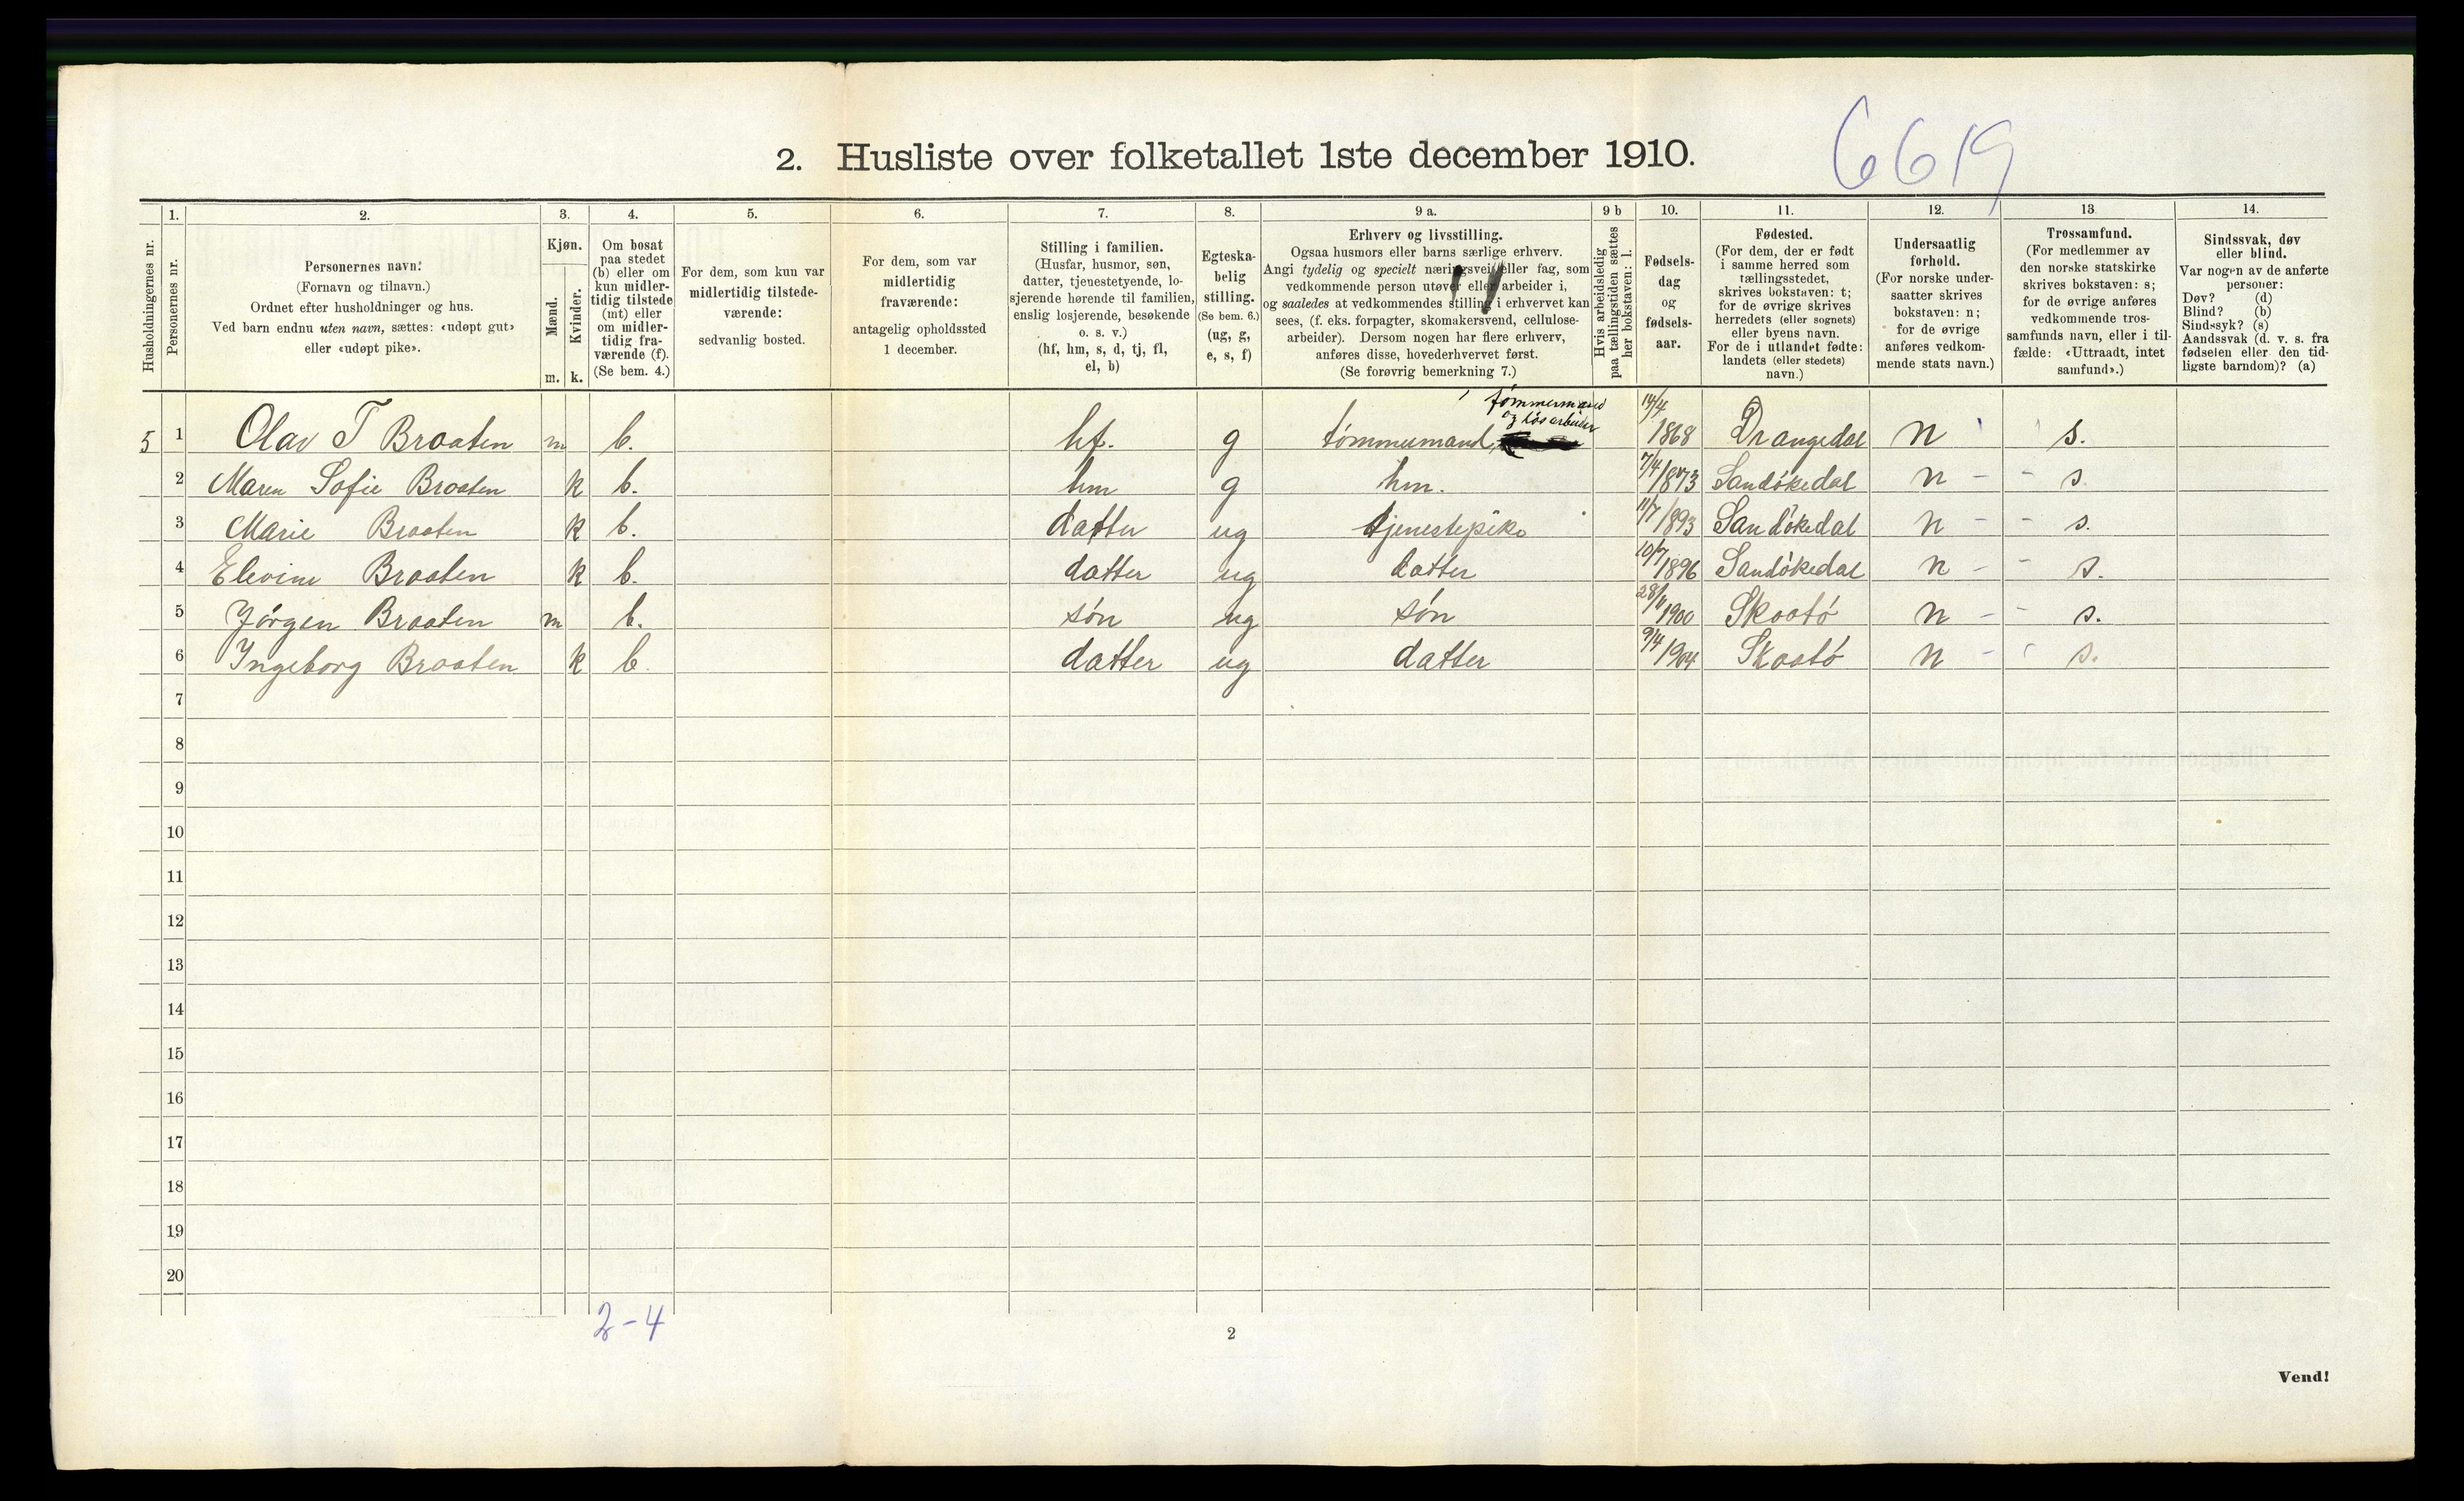 6619
2. Husliste over folketallet 1ste december 1910.
Husholdningernes nr.
1. Personernes nr.
2. Personernes navn:
(Fornavn og tilnavn.)
Ordnet efter husholdninger og hus.
Ved barn endnu uten navn, sættes: «udøpt gut»
eller «udøpt pike».
3. Kjøn.
Mænd. m.
Kvinder. k.
4. Om bosat
paa stedet
(b) eller om
kun midler-
tidig tilstede
(mt) eller
om midler-
tidig fra-
værende (f).
(Se bem. 4.)
5. For dem, som kun var
midlertidig tilstede-
værende:
sedvanlig bosted.
6. For dem, som var
midlertidig
fraværende:
antagelig opholdssted
1 december.
7. Stilling i familien.
(Husfar, husmor, søn,
datter, tjenestetyende, lo-
sjerende hørende til familien,
enslig losjerende, besøkende
o. s. v.)
(hf, hm, s, d, tj, fl,
el, b)
8. Egteska-
belig
stilling.
(Se bem. 6.)
(ug, g,
e, s, f)
9 a. Erhverv og livsstilling.
Ogsaa husmors eller barns særlige erhverv.
Angi tydelig og specielt næringsvei eller fag, som
vedkommende person utøver eller arbeider i,
og saaledes at vedkommendes stilling i erhvervet kan
sees, (f. eks. forpagter, skomakersvend, cellulose-
arbeider). Dersom nogen har flere erhverv,
anføres disse, hovederhvervet først.
(Se forøvrig bemerkning 7.)
9 b Hvis arbeidsledig
paa tællingstiden sættes
her bokstaven: l.
10. Fødsels-
dag
og
fødsels-
aar.
11. Fødested.
(For dem, der er født
i samme herred som
tællingsstedet,
skrives bokstaven: t;
for de øvrige skrives
herredets (eller sognets)
eller byens navn.
For de i utlandet fødte:
landets (eller stedets)
navn.)
12. Undersaatlig
forhold.
(For norske under-
saatter skrives
bokstaven: n;
for de øvrige
anføres vedkom-
mende stats navn.)
13. Trossamfund.
(For medlemmer av
den norske statskirke
skrives bokstaven: s;
for de øvrige anføres
vedkommende tros-
samfunds navn, eller i til-
fælde: «Uttraadt, intet
samfund».)
14. Sindssvak, døv
eller blind.
Var nogen av de anførte
personer:
Døv? (d)
Blind? (b)
Sindssyk? (s)
Aandssvak (d. v. s. fra
fødselen eller den tid-
ligste barndom)? (a)
tømmermand
og løsarbeider
5 1 Olav T Braaten m b. hf. g tømmermand, 14/4 1868 Drangedal n s.
2 Maren Sofie Braaten k b. hm g hm. 7/4 1873 Sandökedal n - - s.
3 Marie Braaten k b. datter ug tjenestepike 11/7 1893 Sandökedal n - - s.
4 Elevine Braaten k b. datter ug datter 10/7 1896 Sandökedal n - - s.
5 Jörgen Braaten m b. sön ug sön 28/11 1900 Skaatö n - - s.
6 Ingeborg Braaten k b. datter ug datter 9/4 1904 Skaatö n - s.
7
8
9
10
11
12
13
14
15
16
17
18
19
20
2-4
2
Vend!